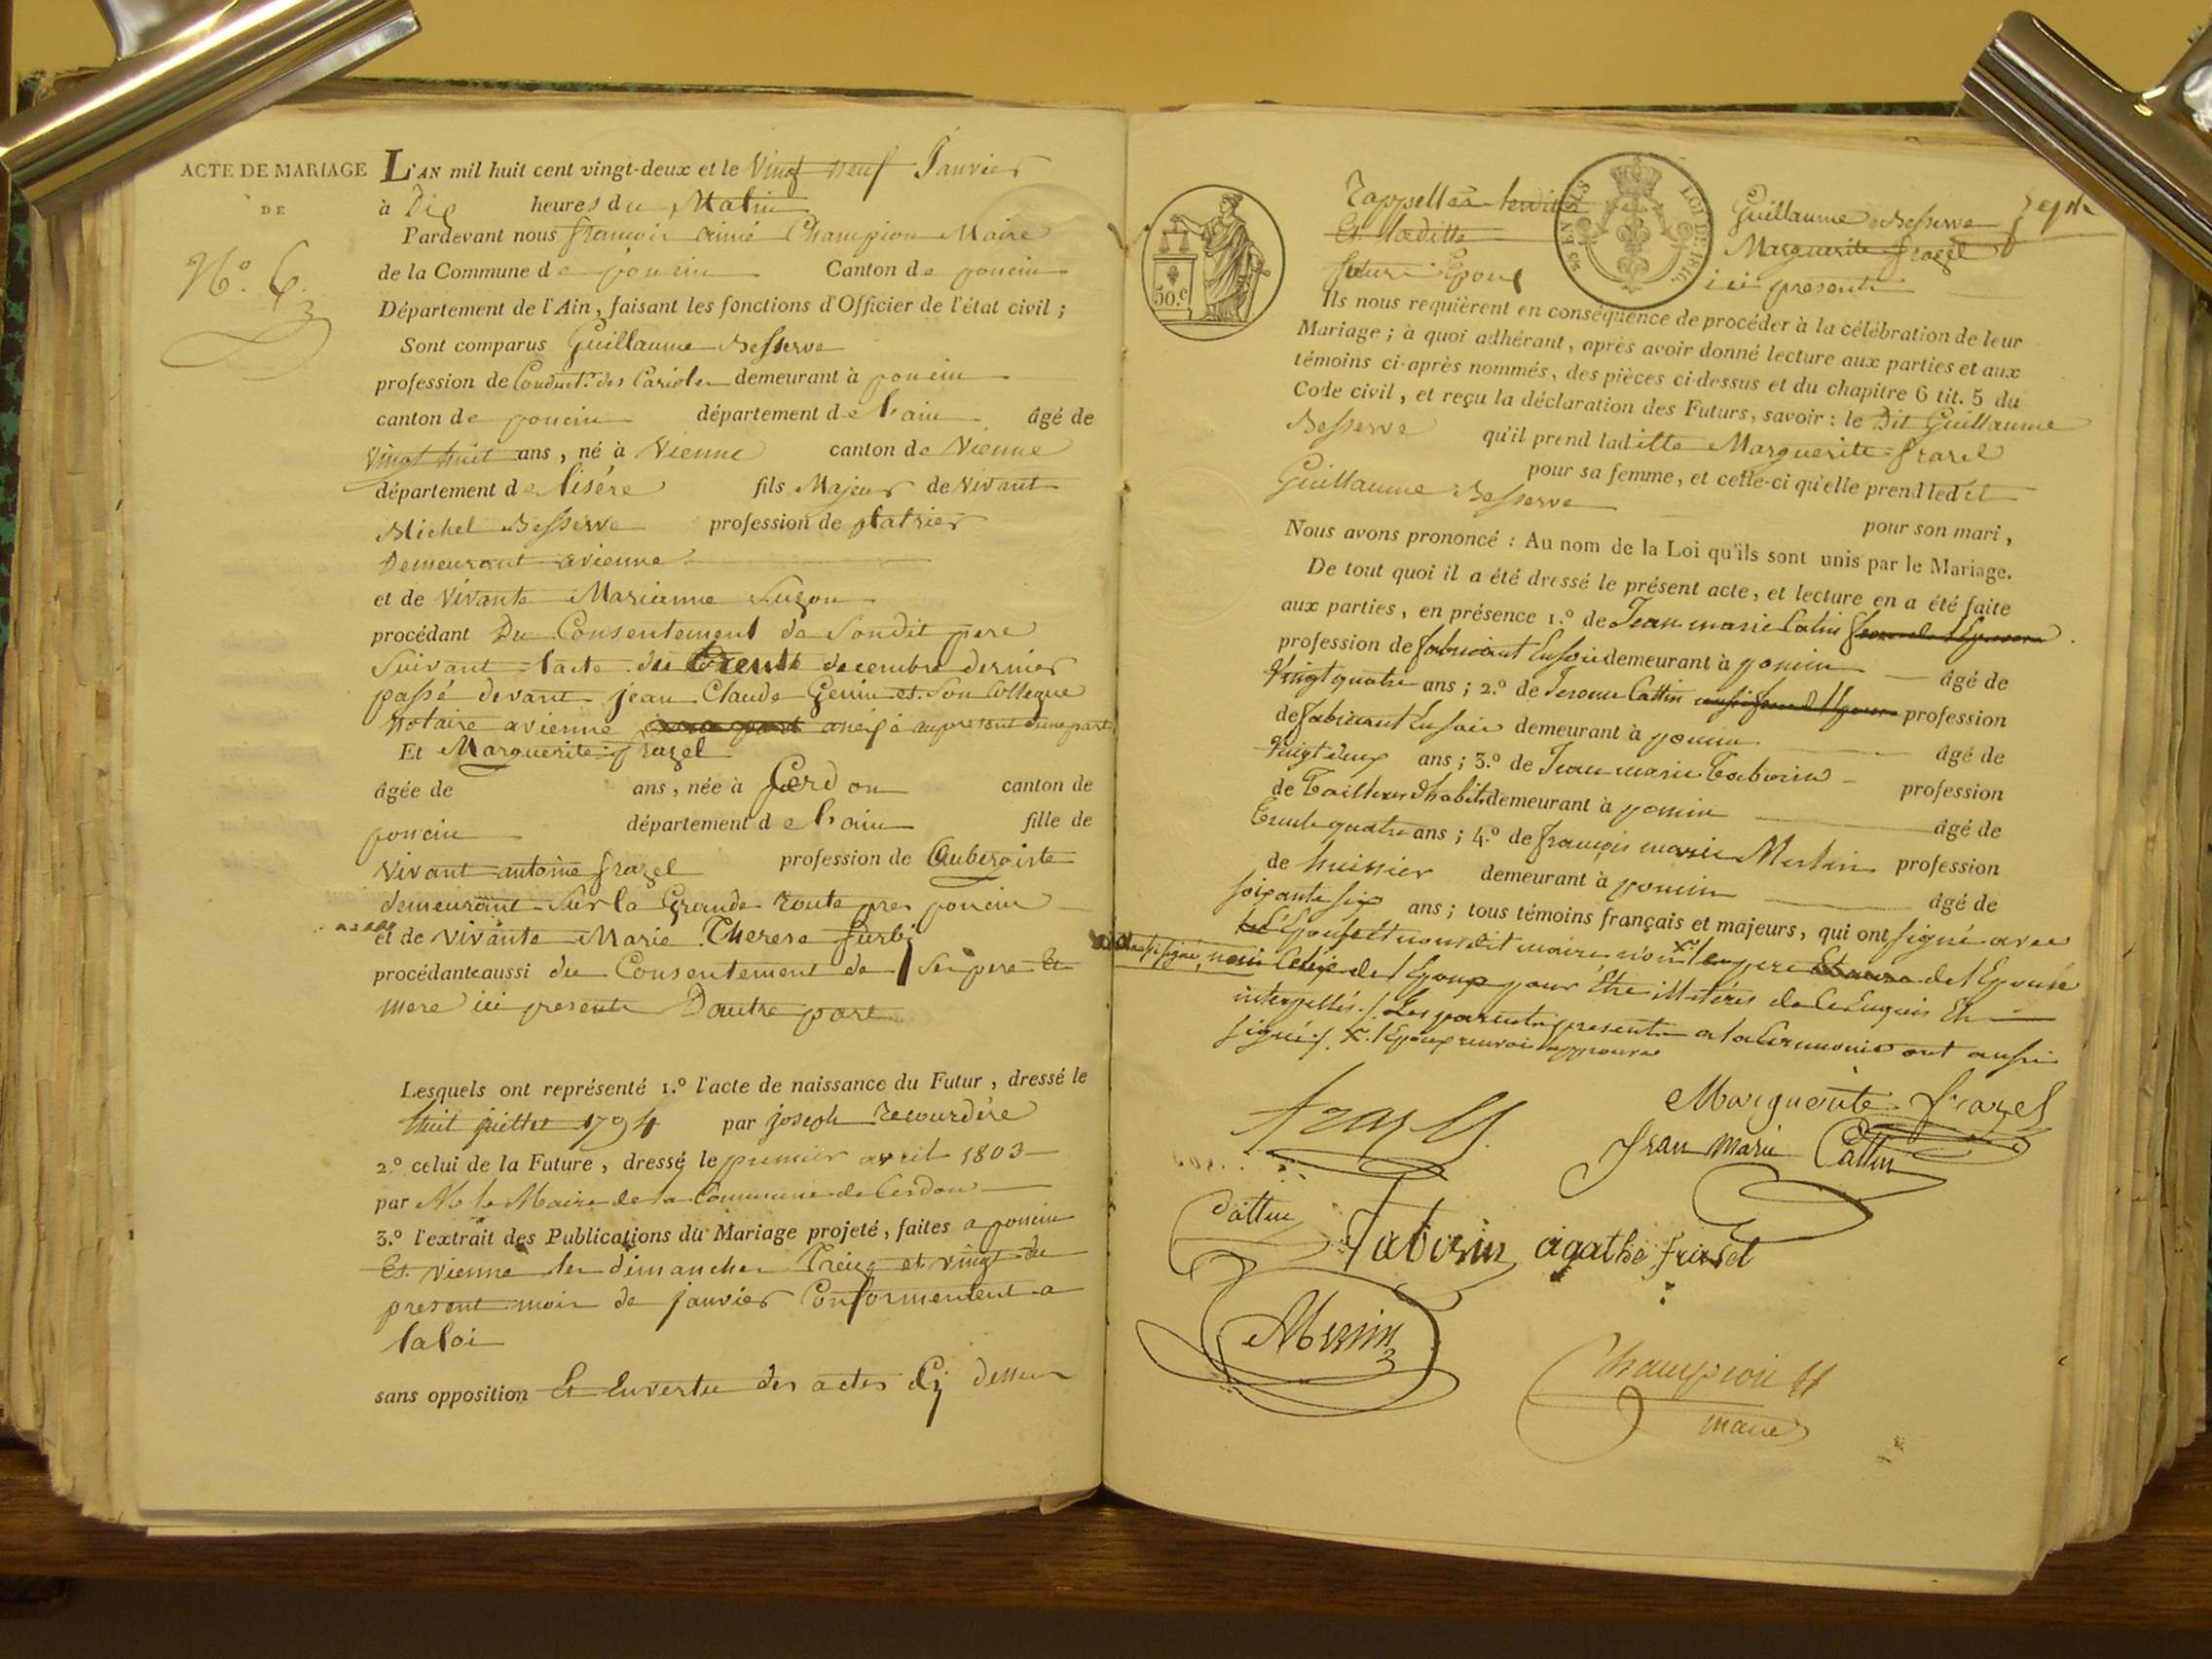 ACTE DE MARIAGE
DE
N.º 6
L'AN mil huit cent vingt-deux et le Vingt neuf Janvier
à Dix heures du Matin
Pardevant nous françois aimé Champion Maire
de la Commune de poncin Canton de poncin
Département de l'Ain, faisant les fonctions d'Officier de l'état civil ;
Sont comparus Guillaume Besserve
profession de Conduct.r des Carioles demeurant à poncin
canton de poncin département de l'ain âgé de
Vingt huit ans, né à Vienne canton de Vienne
département de lisére fils Majeur de vivant
Michel Besserve profession de platrier
Demeurant a vienne
et de Vivante Marianne Luzon
procédant Du Consentement de Sondit pere
Suivant lacte du trente decembre dernier
passé devant jean Claude Genin et Son Collegue
notaire a vienne au present d'une part
Et Marguerite frazel
âgée de ans, née à Cerdon canton de
poncin département de l'ain fille de
vivant antoine frazel profession de Aubergiste
demeurant Sur la Grande route pres poncin
et de vivante Marie Therese furbi
procédante aussi du Consentement de Ses pere Et
mere ici presents Dautre part
Lesquels ont représenté 1.º l'acte de naissance du Futur, dressé le
huit juillet 1794 par joseph recourdére
2.º celui de la Future, dressé le premier avril 1803
par M le Maire de la Commune de Cerdon
3.º l'extrait des Publications du Mariage projeté, faites a poncin
Et vienne les dimanches Treize et vingt du
present mois de janvier Conformement a
la loi
sans opposition Et En vertu des actes Cy dessus
50.c
5.s EN SUS LOI DE 1816
rappellés lesdits Guillaume Besserve
Et laditte Marguerite frazel
futurs Epoux ici presents
Ils nous requièrent en conséquence de procéder à la célébration de leur
Mariage ; à quoi adhérant, après avoir donné lecture aux parties et aux
témoins ci-après nommés, des pièces ci-dessus et du chapitre 6 tit. 5 du
Code civil, et reçu la déclaration des Futurs, savoir : le Dit Guillaume
Besserve qu'il prend laditte Marguerite frazel
pour sa femme, et celle-ci qu'elle prend ledit
Guillaume Besserve
pour son mari,
Nous avons prononcé : Au nom de la Loi qu'ils sont unis par le Mariage.
De tout quoi il a été dressé le présent acte, et lecture en a été faite
aux parties, en présence 1.º de Jean marie Catin
profession de fabricant En soie demeurant à poncin âgé de
Vingt quatre ans ; 2.º de Jerome Cattin profession
de fabricant En soie demeurant à poncin âgé de
Vingt deux ans ; 3.º de Jean marie Taborin profession
de Tailleur d'habits demeurant à poncin âgé de
Trente quatre ans ; 4.º de françois marie Merlin profession
de huissier demeurant à poncin âgé de
soixante six ans ; tous témoins français et majeurs, qui ont signé avec
l'Epouse et nous dit maire non pere de l'Epouse
aussi signé, de l'Epoux pour être illitérés de ce Enquis Et
interpellés. Les parents presents a la Ceremonie ont aussi
signé. X. l'Epoux renvoi approuvé
frazel
Marguerite frazel
Jean Marie Cattin
Cattin
Taborin agathe frasel
Champion
maire